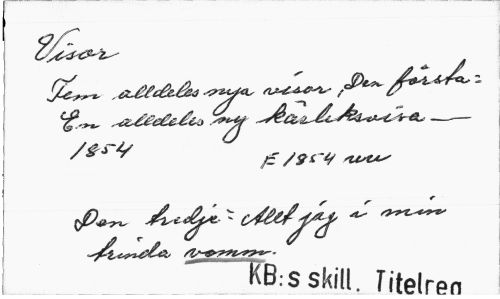 Visor
Fem alldeles nya visor, Den första=
En alldeles ny kärleksvisa —
1854
F 1854
Den tredje= Allt jag i min
trinda vomm.
KB:s skill. Titelreg